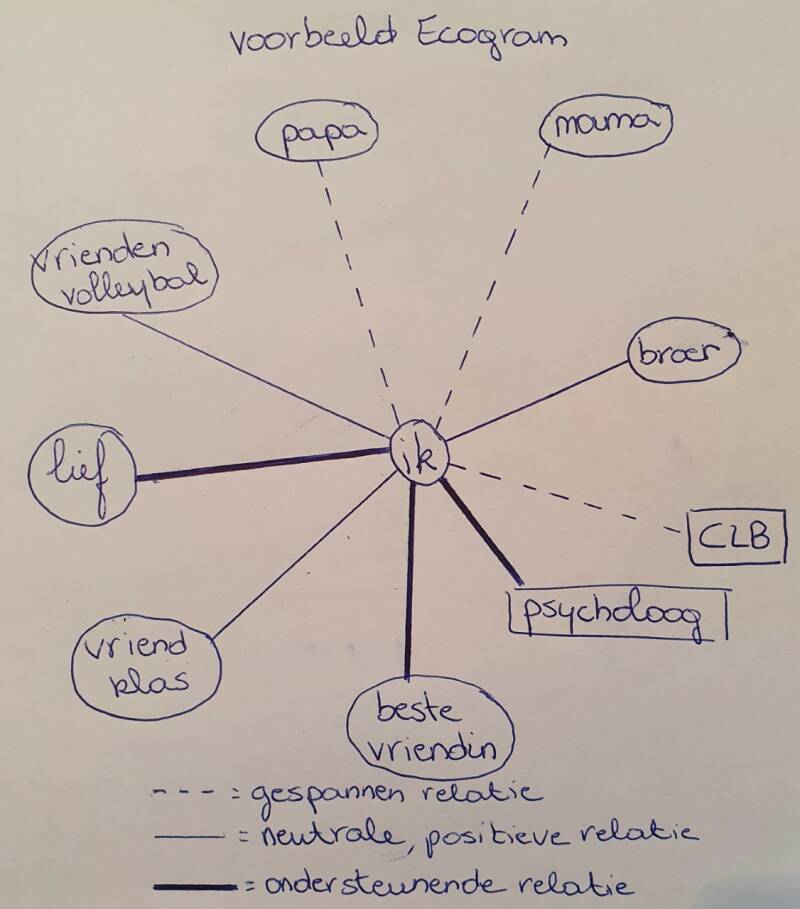 voorbeeld Ecogram
papa
mama
vrienden
volleybal
broer
lief
ik
CLB
psycholoog
vriend
klas
beste
vriendin
--- = gespannen relatie
— = neutrale, positieve relatie
— = ondersteunende relatie